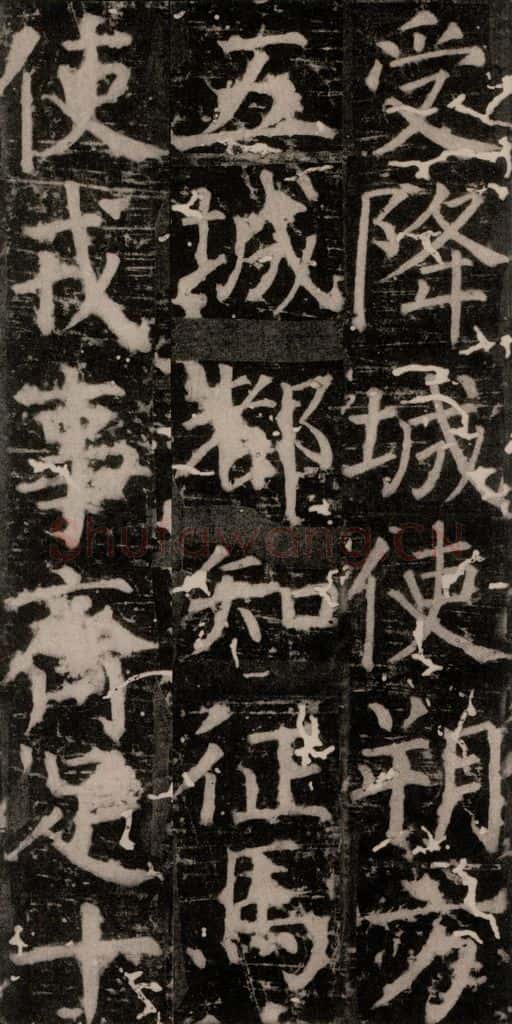 受降城使朔方
五城都知征馬
使戎事齊足十
Shufawang.CN